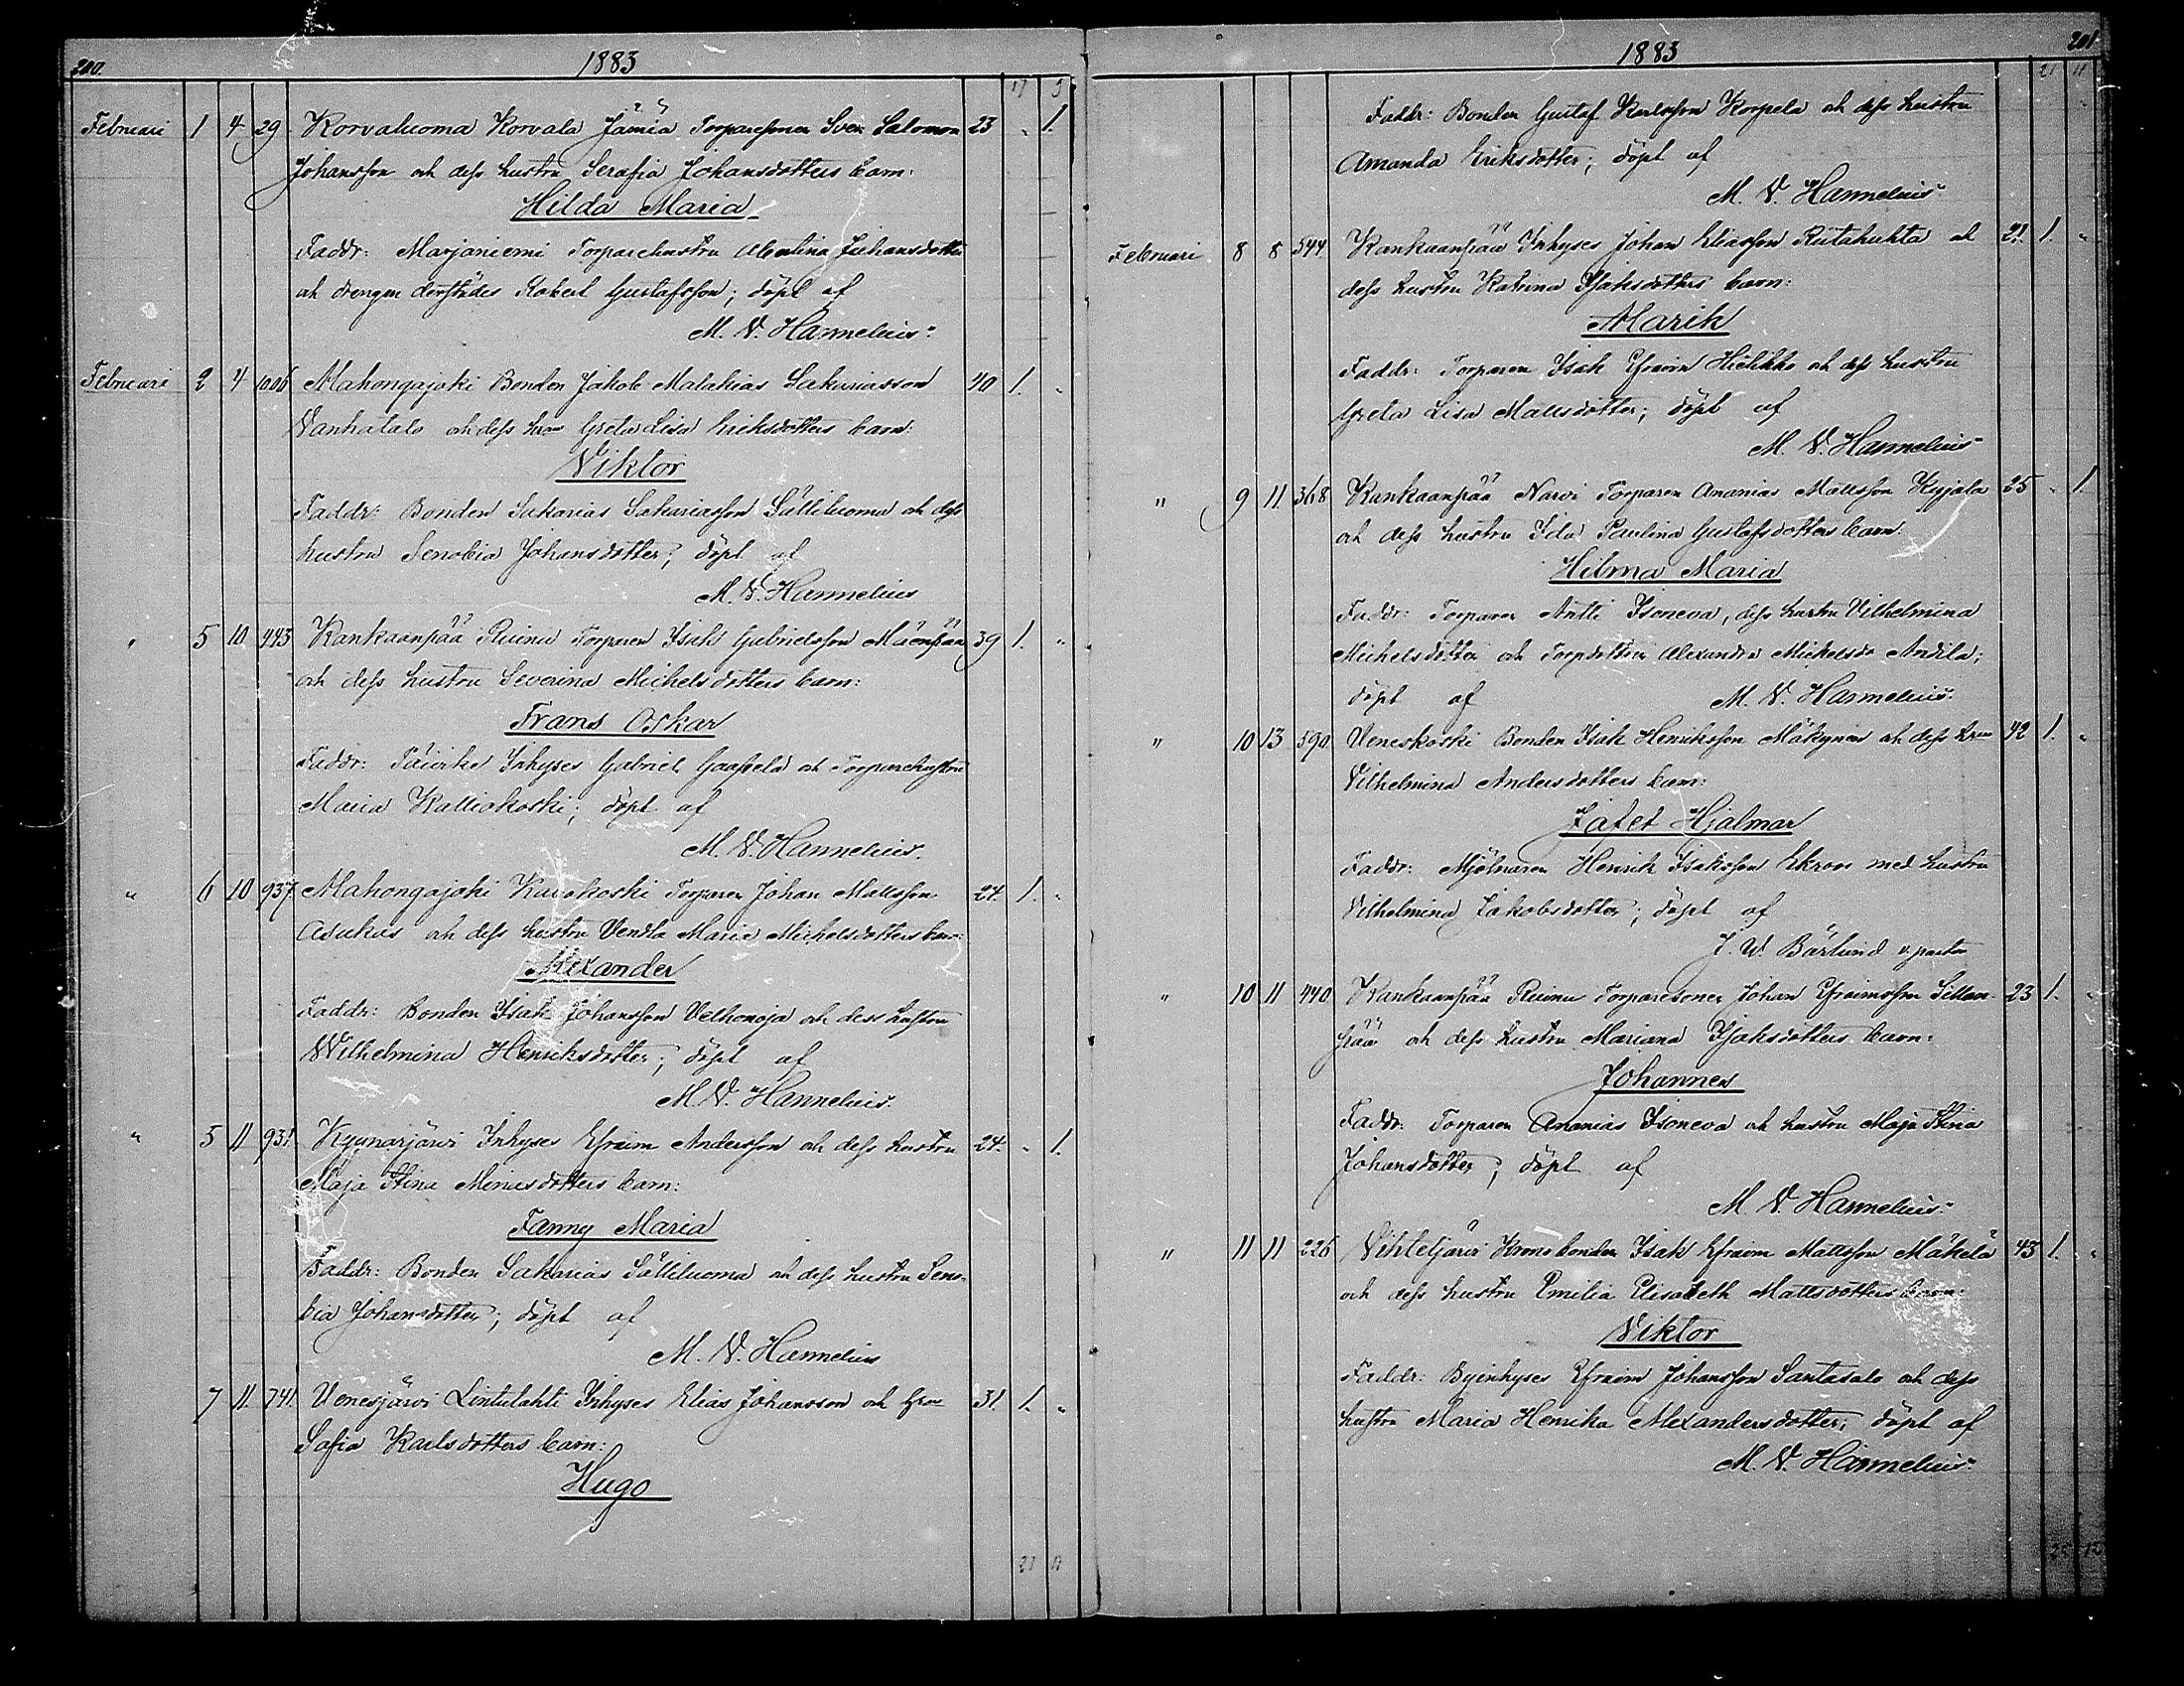 200.
1883
17 5
Februari 1 4 29 Korvaluoma Korvala Jämiä Torparesonen Sven Salomon 23 " 1.
Johansson och dess hustru Serafia Johansdotters barn:
Hilda Maria
Faddr: Marjaniemi Torparehustru Johansdotter
och drengen derstädes Robert Gustafsson; döpt af
M. V. Hannelius.
Februari 2 4 1006 Mahongajoki Bonden Jakob Malakias Sakariasson 40 1. "
Vanhatalo och dess hru Greta Lisa Eriksdotters barn:
Viktor
Faddr: Bonden Sakarias Sakariasson Sälliluoma och dess
hustru Senobia Johansdotter; döpt af
M. V. Hannelius
" 5 10 443 Kankaanpää Ruinu Torparen Isak Gabrielsson Mäenpää 39 1. "
och dess hustru Severina Michelsdotters barn:
Frans Oskar
Faddr: Inhyses Gabriel och Torparehustru
Maria Kalliokoski; döpt af
M. V. Hannelius.
" 6 10 937. Mahongajoki Torparen Johan Mattsson 24. 1. "
Asukas och dess hustru Vendla Maria Michelsdotters barn:
Alexander
Faddr: Bonden Isak Johansson Velhonoja och dess hustru
Wilhelmina Henriksdotter; döpt af
M. V. Hannelius.
" 5 11 931. Kyynärjärvi Inhyses Efraim Andersson och dess hustru 24. " 1.
Maja Stina dotters barn:
Fanny Maria
Faddr: Bonden Sakarias Sälliluoma och dess hustru Seno-
bia Johansdotter; döpt af
M. V. Hannelius
7 11. 741. Venesjärvi Lintulahti Inhyses Elias Johansson och hru 31. 1. "
Sofia Karlsdotters barn:
Hugo
21 11
1883
201
21 11
Faddr: Bonden Gustaf Karlsson Korpela och dess hustru
Amanda Eriksdotter; döpt af
M. V. Hannelius.
Februari 8 8 544. Kankaanpää Inhyses Johan Eliasson Riitahuhta och 21. 1. "
dess hustru Katrina Isaksdotters barn:
Marik
Faddr: Torparen Isak Efraim Hietikko och dess hustru
Greta Lisa Mattsdotter; döpt af
M. V. Hannelius
" 9 11 368 Kankaanpää Narvi Torparen Ananias Mattsson 25 " 1.
och dess hustru Ida Paulina Gustafsdotters barn:
Hilma Maria
Faddr: Torparen Antti Isoneva, dess hustru Vilhelmina
Michelsdotter och Alexandra Andila;
döpt af M. V. Hannelius.
" 10 13 590. Veneskoski Bonden Isak Henriksson Mäkynen och dess hru 42 1. "
Vilhelmina Andersdotters barn:
Jafet Hjalmar
Faddr: Mjölnaren Henrik Isaksson Ekroos med hustru
Vilhelmina Jakobsdotter; döpt af
J. W. Bärlund v. pastor
" 10 11 440. Kankaanpää Ruinu Torparesonen Johan Efraimsson Sillan- 23 1. "
pää och dess hustru Mariana Isaksdotters barn:
Johannes
Faddr: Torparen Ananias Isoneva och hustru Maja Stina
Johansdotter; döpt af
M. V. Hannelius.
" 11 11 226 Vihteljärvi Kronobonden Isak Efraim Mattsson Mäkelä 43 1. "
och dess hustru Emilia Elisabeth Mattsdotters barn:
Viktor
Faddr: Byinhyses Efraim Johansson Santasalo och dess
hustru Maria Henrika Alexandersdotter; döpt af
M. V. Hannelius.
25 12